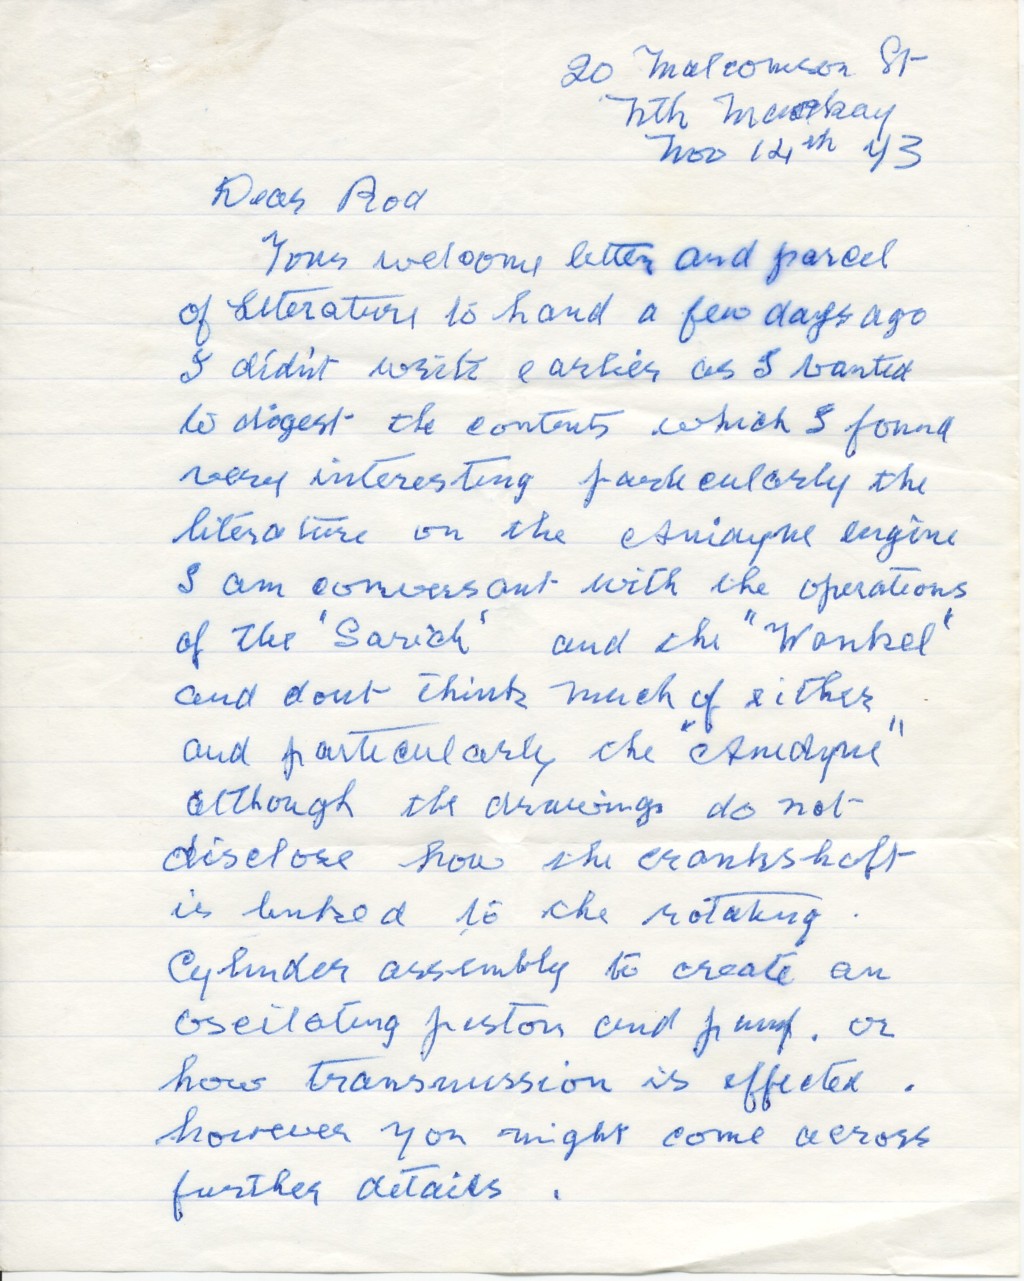 20 Malcomson St
Nth Mackay
Nov 14th 73
Dear Rod
Your welcome letter and parcel
of literature to hand a few days ago
I didn't write earlier as I wanted
to digest the contents which I found
very interesting particularly the
literature on the engine
I am conversant with the operations
of the "Sarich" and the "Wankel"
and dont think much of either
and particularly the
although the drawings do not
disclose how the crankshaft
is linked to the rotating
Cylinder assembly to create an
oscilating piston and pump. or
how transmission is effected.
however you might come across
further details.